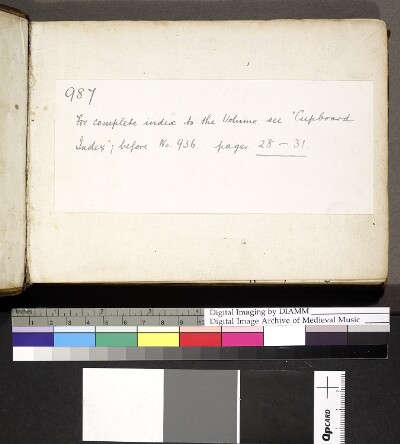 987
For complete index to the Volume see "Cupboard
Index"; before No. 936. pages 28 – 31
Inches 1 2 3 4
Digital Imaging by DIAMM
Digital Image Archive of Medieval Music
QPCARD